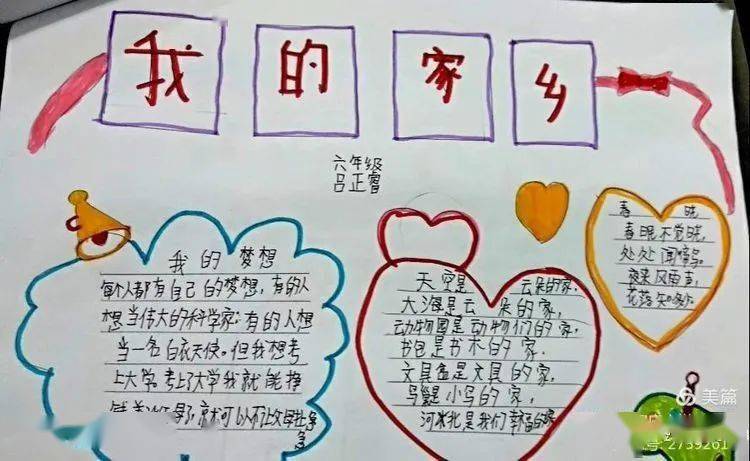 我的家乡
六年级
吕正睿
我的梦想
每个人都有自己的梦想，有的人
想当伟大的科学家；有的人想
当一名白衣天使。但我想考
上大学。考上了大学我就能挣
天空是云朵的家，
大海是云朵的家，
动物园是动物们的家，
书包是书本的家，
文具盒是文具的家，
鸟 小鸟的家，
河北是我们幸福的家
春晓
春眠不觉晓，
处处闻啼鸟。
夜来风雨声，
花落知多少
美篇
2739261